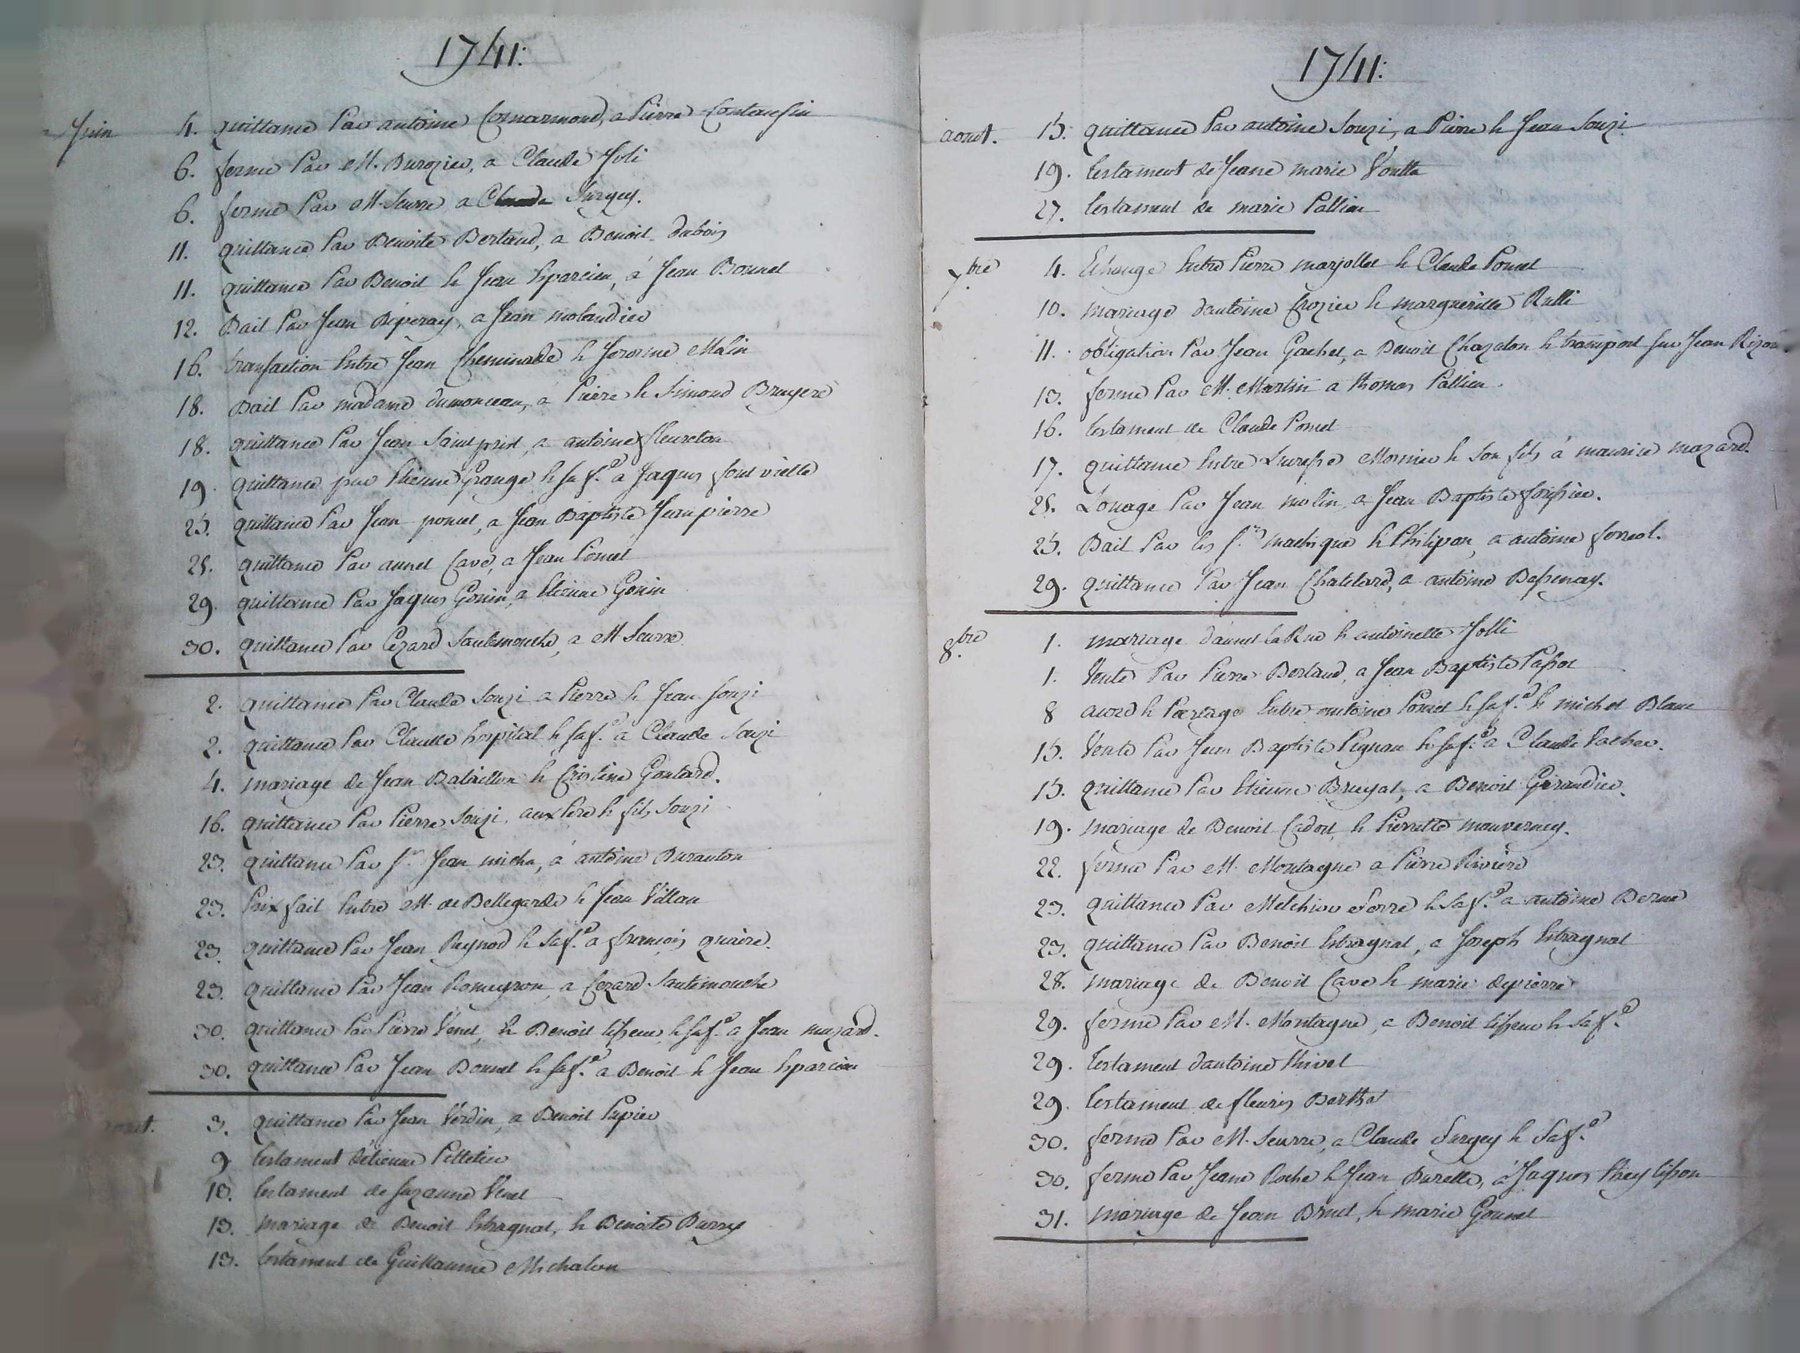 1741:
Juin 4. quittance Par antoine Cornarmond, a Pierre Contansin
6. ferme Par M. Durozier, a Claude Joli
6. ferme Par M. Seurre a Claude Surgey.
11. quittance Par Benoite Bertaud, a Benoit dubois
11. quittance Par Benoit & Jean Eparcieu, à Jean Bonnet
12. Bail Par Jean Biperay, a Jean molandier
16. transaction Entre Jean Cheminade & Jerorine Malin
18. Bail Par madame dumonceau, a Pierre & Simond Bruyere
18. quittance Par Jean Saint prist, a antoine fleureton
19. quittance par Etienne Grange & sa fe. a Jaques font vielle
25. quittance Par Jean poncet, a Jean Baptiste Jean pierre
25. quittance Par annet Cave, a Jean Poncet
29. quittance Par Jaques Gonin, a Etienne Gonin
30. quittance Par Cezard Sautemouche, a M Seurre
2. quittance Par Claude Souzi a Pierre & Jean Souzi
2. quittance Par Claude hospital & sa fe. a Claude Souzi
4. mariage de Jean Bataillon & Cristine Goutard.
16. quittance Par Pierre Souzi, aux Pere & fils Souzi
23. quittance Par Sr. Jean micha, à antoine Duranton
23. Prix fait Entre M. de Bellegarde & Jean Villan
23. quittance Par Jean Reynod & sa fe. a francois quaire.
23. quittance Par Jean Romeyron, a Cezard Sautemouche
30. quittance Par Pierre Venet, & Benoit tisseur & sa fe. a Jean mazard.
30. quittance Par Jean Bonnet & sa fe. a Benoit & Jean Eparcieu
aout. 3. quittance Par Jean Verdin, a Benoit Papier
9 testament d'etienne Pelletier
10. testament de suzanne Venet
13. mariage de Benoit Estragnat, & Benoite Durry
13. testament de Guillaume Michalon
1741:
aout. 15. quittance Par antoine Souzi, a Pierre & Jean Souzi
19. testament de Jeane marie Voutta
27. testament de marie Pallieu
7.bre 4. Echange Entre Pierre marjollet & Claude Poncet
10. mariage d'antoine Crozier & marguerite Ralli
11. obligation Par Jean Gachet, a Benoit Chazalon & transport sur Jean Rizon.
13. ferme Par M. Martin a thomas Pallieu
16. testament de Claude Poncet
17. quittance Entre Mornieu & son fils à maurice mazard.
25. Louage Par Jean molin, a Jean Baptiste
25. Bail Par les Srs & Philipon, a antoine ferreol.
29. quittance Par Jean Chatelard, a antoine Dessenay.
8.bre 1. mariage d'annet LaRue & antoinette Jolli
1. Vente Par Pierre Bertaud, a Jean Baptiste Passot
8 acord & Partage Entre antoine Poncet & sa fe. & michel Blanc
15. Vente Par Jean Baptiste Pignau & sa fe. a Claude Vacher.
15. quittance Par Etienne Bruyat, a Benoit Giraudier.
19. mariage de Benoit Cadost, & Pierrette mouverney.
22. ferme Par M. Montagne a Pierre Riviere
23. quittance Par Melchior ferre & sa fe. a antoine Berne
23. quittance Par Benoit Estragnat, a Joseph Estragnat
28. mariage de Benoit Cave & marie depierre
29. ferme Par M. Montagne, a Benoit tisseur & sa fe.
29. testament d'antoine thivet
29. testament de fleuris Berthet
30. ferme Par M. Seurre, a Claude Surgey & sa fe.
30. ferme Par Jeane Roche & Jean Burelle, à Jaques
31. mariage de Jean Brunet, & marie Gounet